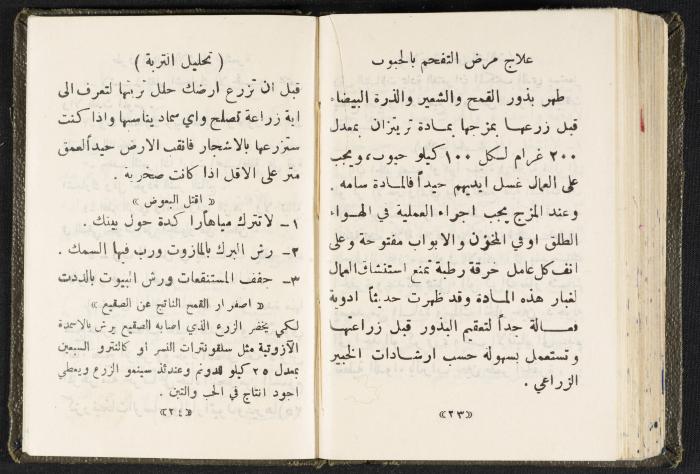 علاج مرض التفحم بالحبوب
طهر بذور القمح والشعير والذرة البيضاء
قبل زرعها بمزجها بمادة تريتزان بمعدل
٢٠٠ غرام لكل ١٠٠ كيلو حبوب، ويجب
على العمال غسل ايديهم جيداً فالمادة سامه .
وعند المزج يجب اجراء العملية في الهواء
الطلق او في المخزن والابواب مفتوحة وعلى
انف كل عامل خرقة رطبة تمنع استنشاق العمال
لغبار هذه المادة وقد ظهرت حديثاً ادوية
فعالة جداً لتعقيم البذور قبل زراعتها
وتستعمل بسهولة حسب ارشادات الخبير
الزراعي .
«٢٣»
( تحليل التربة )
قبل ان تزرع ارضك حلل تربتها لتعرف الى
اية زراعة تصلح واي سماد يناسبها واذا كنت
ستزرعها بالاشجار فانقب الارض جيداً لعمق
متر على الاقل اذا كانت صخرية .
« اقتل البعوض »
١ـ لا تترك مياهاً راكدة حول بيتك .
٢ـ رش البرك بالمازوت ورب فيها السمك .
٣ـ جفف المستنقعات ورش البيوت بالددت
« اصفرار القمح الناتج عن الصقيع »
لكي يخضر الزرع الذي اصابه الصقيع يرش بالاسمدة
الآزوتية مثل سلفونترات النسر او كالنترو السبعين
بمعدل ٢٥ كيلو للدونم وعندئذ سينمو الزرع ويعطي
اجود انتاج في الحب والتبن .
«٢٤»